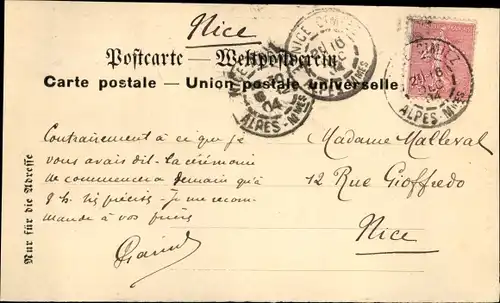 Nice
Postkarte — Weltpostverein
Carte postale — Union postale universelle
NICE CIMIEZ
ALPES-Mmes
CIMIEZ
ALPES-Mmes
04
ALPES-Mmes
Nur für die Adresse
Contrairement à ce que je
vous avais dit - la cérémonie
ne commencera demain qu'à
8 h. ½ précis - je me recom-
mande à vos prières
Madame Malleval
12 Rue Gioffredo
Nice